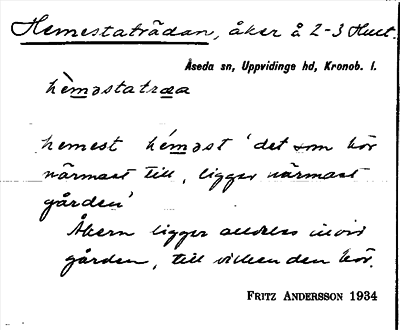 Hemestaträdan, åker å 2-3 Hult.
Åseda sn, Uppvidinge hd, Kronob. l.
hèməstatræa
hemest héməst 'det som hör
närmast till, ligger närmast
gården'
Åkern ligger alldeles invid
gården, till vilken den hör.
FRITZ ANDERSSON 1934